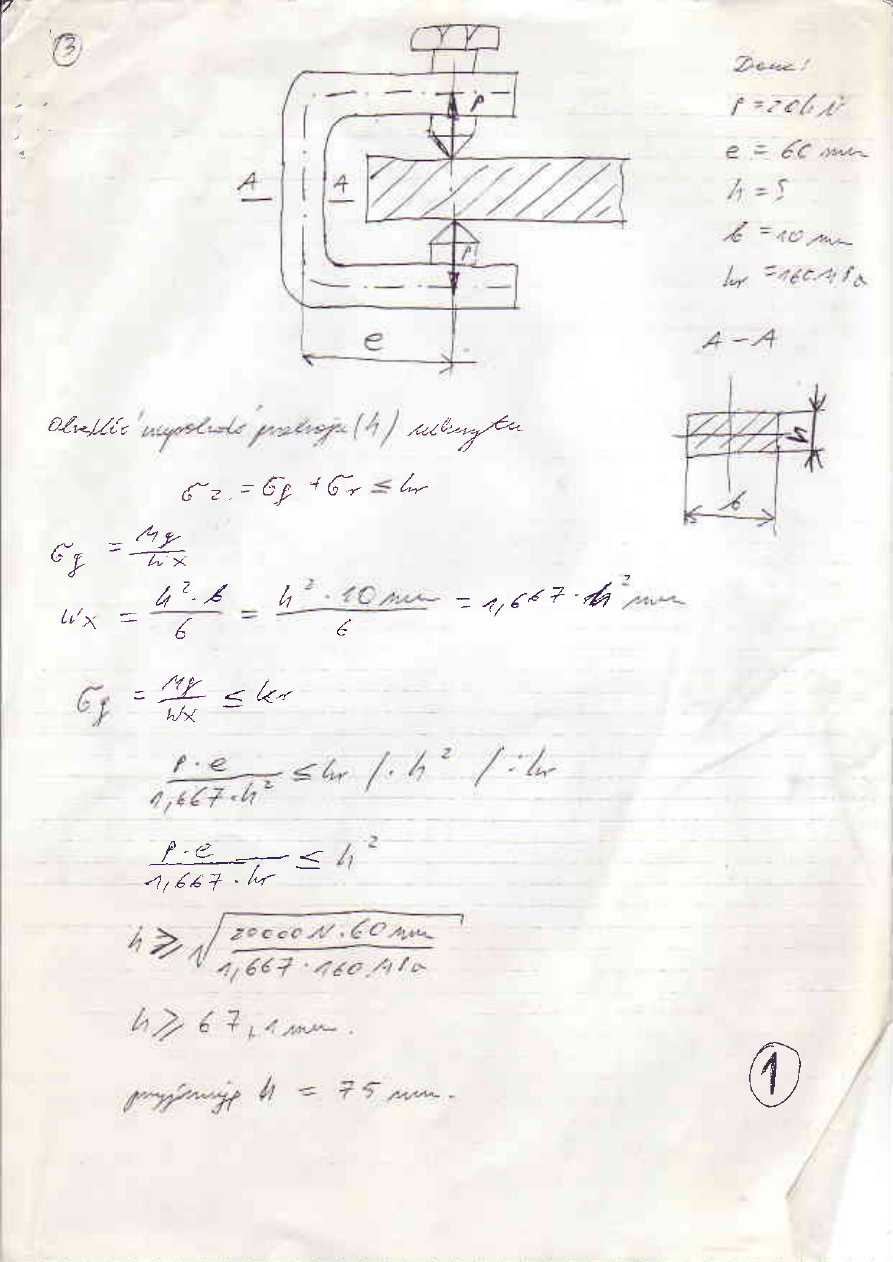 3
Dane:
P = 20kN
e = 60 mm
h = ?
b = 10 mm
kr = 160 MPa
P
A A
P
e
A – A
h
b
Określić przekroju (h)
σz = σg + σr ≤ kr
σg = Mg / Wx
Wx = h² · b / 6 = h² · 10 mm / 6 = 1,667 · h² mm
σg = Mg / Wx ≤ kr
P · e / 1,667 · h² ≤ kr / · h² / : kr
P · e / 1,667 · kr ≤ h²
h ≥ √ 20000 N · 60 mm / 1,667 · 160 MPa
h ≥ 67,1 mm.
przyjmuję h = 75 mm.
1